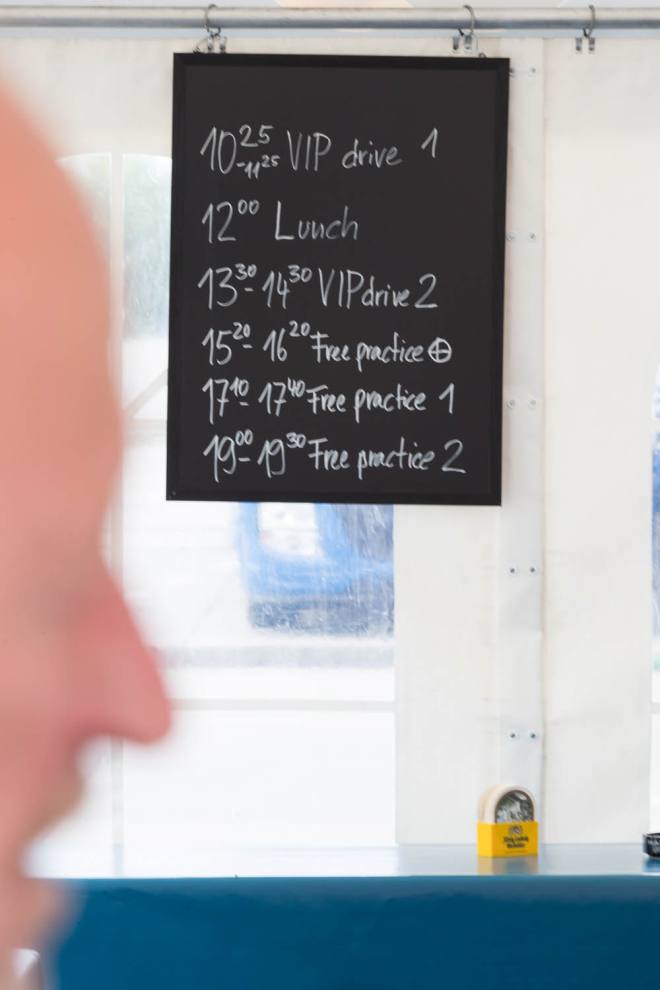 10²⁵-11²⁵ VIP drive 1
12⁰⁰ Lunch
13³⁰-14³⁰ VIP drive 2
15²⁰-16²⁰ Free practice ⊕
17¹⁰-17⁴⁰ Free practice 1
19⁰⁰-19³⁰ Free practice 2